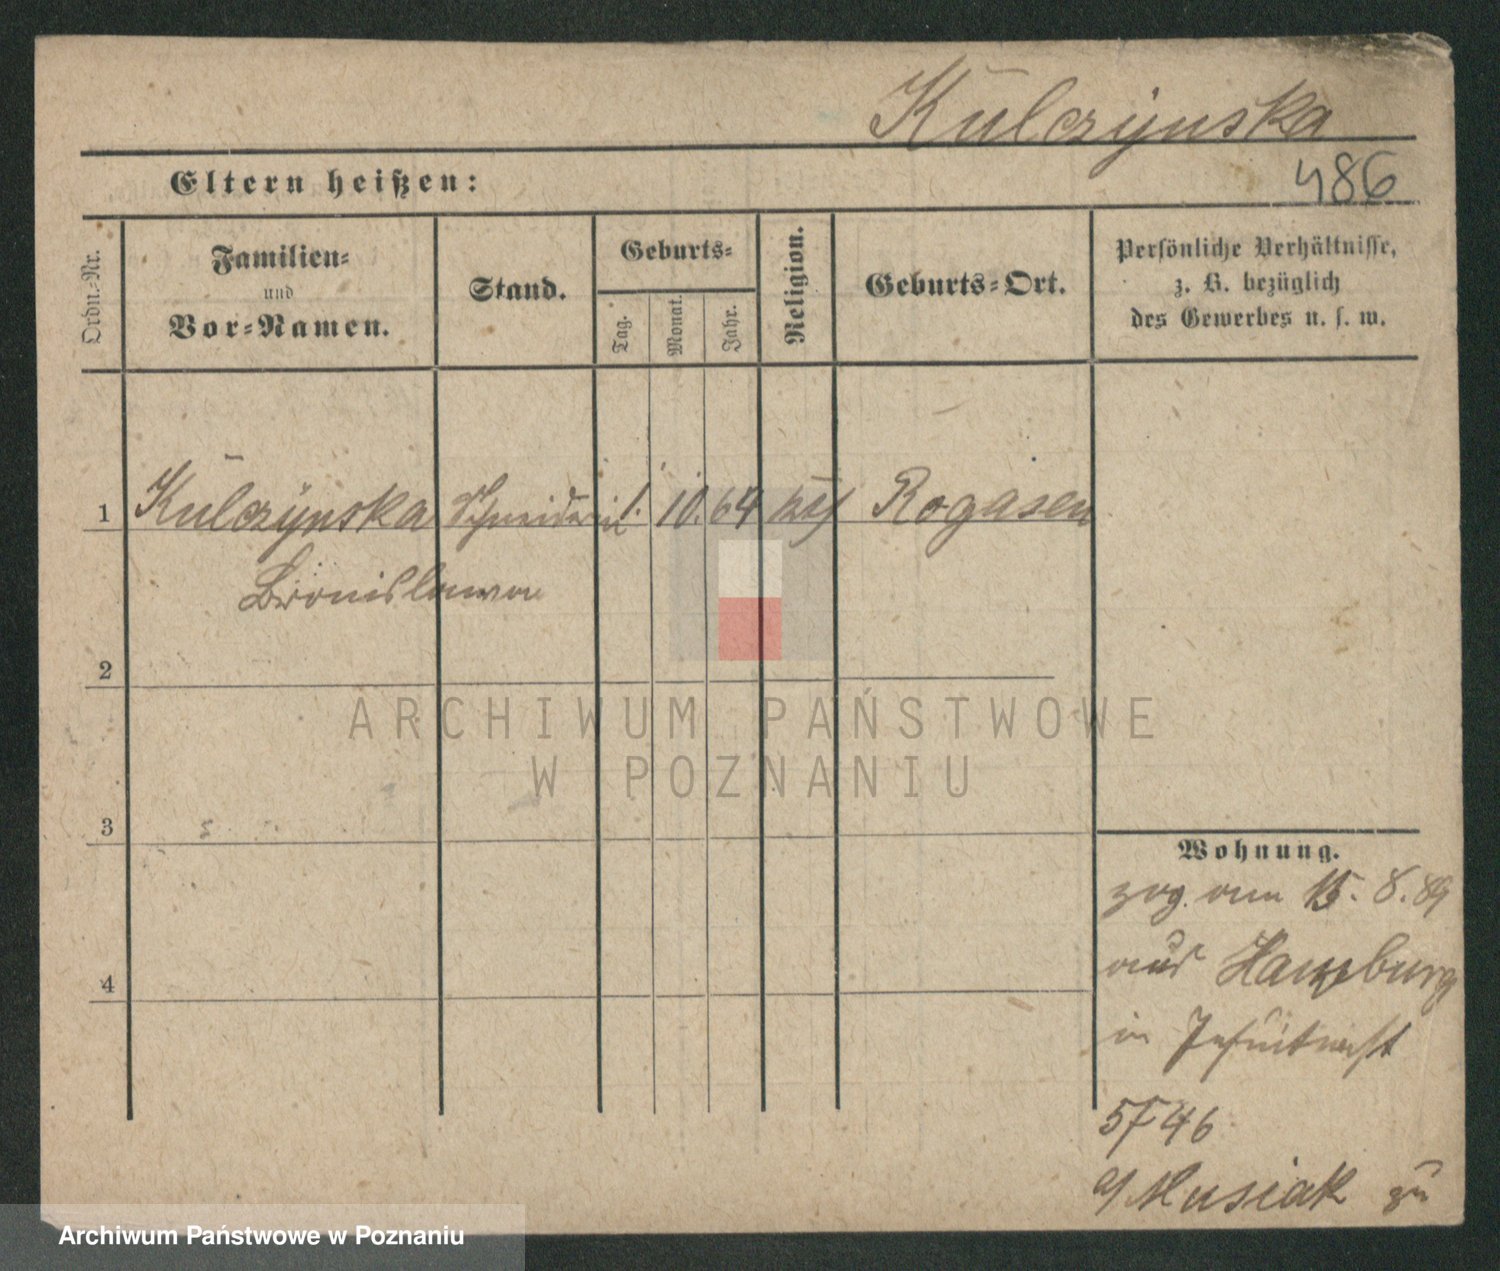 Kulczynska
486
Eltern heißen:
Ordn.-Nr.
Familien-
und
Vor-Namen.
Stand.
Geburts-
Tag.
Monat.
Jahr.
Religion.
Geburts-Ort.
Persönliche Verhältnisse,
z. B. bezüglich
des Gewerbes u. s. w.
1 Kulczynska Schneiderin 1. 10. 64 kth Rogasen
Bronislawa
2
ARCHIWUM PAŃSTWOWE
W POZNANIU
3
Wohnung.
zog. am 15. 8. 89
aus Hamburg
in
4
5746
a/ Musiak zu
Archiwum Państwowe w Poznaniu